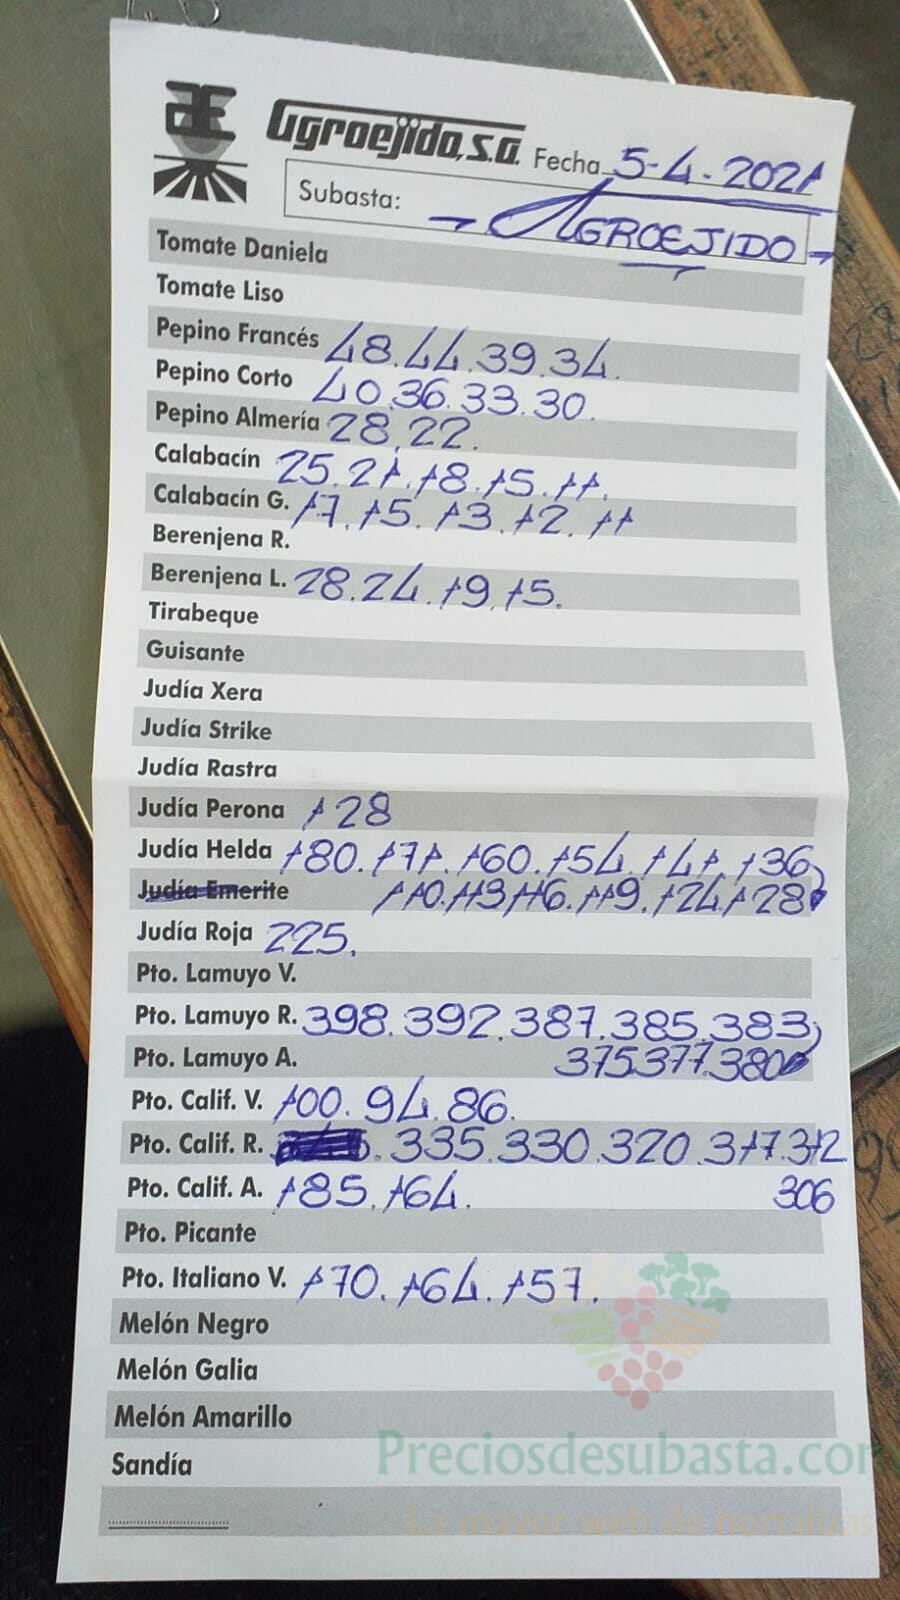 AE Agroejido, s.a. Fecha 5-4-2021
Subasta: → AGROEJIDO -
Tomate Daniela
Tomate Liso
Pepino Francés 48.44.39.34.
Pepino Corto 40.36.33.30.
Pepino Almería 28.22.
Calabacín 25.21.18.15.11.
Calabacín G. 17.15.13.12.11
Berenjena R.
Berenjena L. 28.24.19.15.
Tirabeque
Guisante
Judía Xera
Judía Strike
Judía Rastra
Judía Perona 128
Judía Helda 180.171.160.154.141.136
Judía Emerite 110.113.116.119.124.128
Judía Roja 225.
Pto. Lamuyo V.
Pto. Lamuyo R. 398.392.387.385.383
Pto. Lamuyo A. 375.377.380
Pto. Calif. V. 100.94.86.
Pto. Calif. R. .335.330.320.317.312
Pto. Calif. A. 185.164. 306
Pto. Picante
Pto. Italiano V. 170.164.157.
Melón Negro
Melón Galia
Melón Amarillo
Preciosdesubasta.com
Sandía
La mayor web de hortalizas